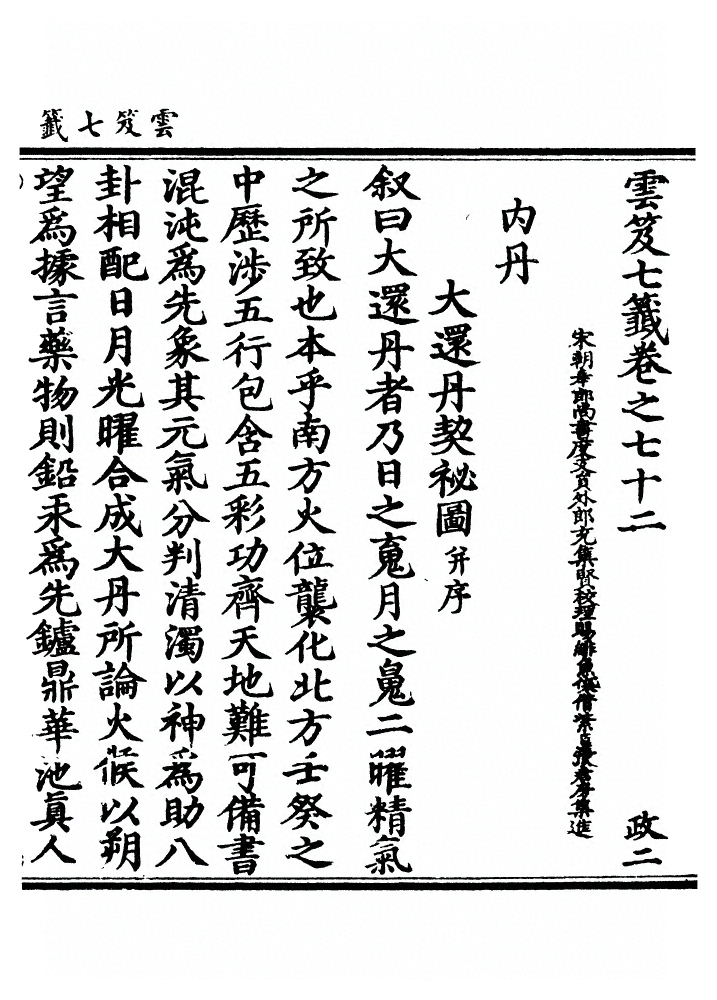 雲笈七籤
雲笈七籤卷之七十二
政二
宋朝奉郎尚書度支員外郎充集賢校理賜緋魚袋借紫臣張君房集進
内丹
大還丹契祕圖并序
叙曰大還丹者乃日之䰟月之䰟二曜精氣
之所致也本乎南方火位襲化北方壬癸之
中歷涉五行包含五彩功齊天地難可備書
混沌爲先象其元氣分判清濁以神爲助八
卦相配日月光曜合成大丹所論火候以朔
望爲據言藥物則鉛汞爲先鑪鼎華池真人